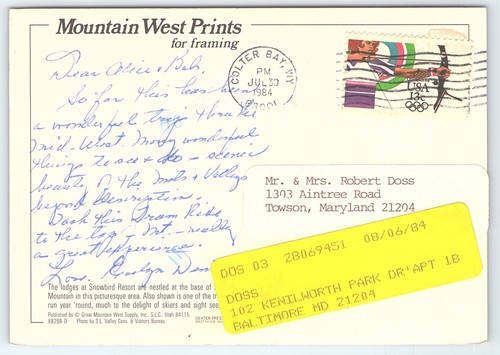 Mountain West Prints
for framing
COLTER BAY, WY
PM
JUL 30
1984
USA
13c
Dear Alice & Bob,
So far this has been
a wonderful trip thru the
Mid-West. Many wonderful
things to see & do - scenic
beauty of the Mts & Valleys
beyond description.
Took this Tram Ride
to the top of Mt. - really
a great experience.
Love,
Mr. & Mrs. Robert Doss
1303 Aintree Road
Towson, Maryland 21204
DOS 03 28069451 08/06/84
DOSS
102 KENILWORTH PARK DR'APT 1B
BALTIMORE MD 21204
The lodges at Snowbird Resort are nestled at the base of
Mountain in this picturesque area. Also shown is one of the
run year 'round, much to the delight of skiers and sight
Published by © Great Mountain West Supply, Inc., S.L.C., Utah 84115
Photo by S.L. Valley Conv. & Visitors Bureau.
DEXTER